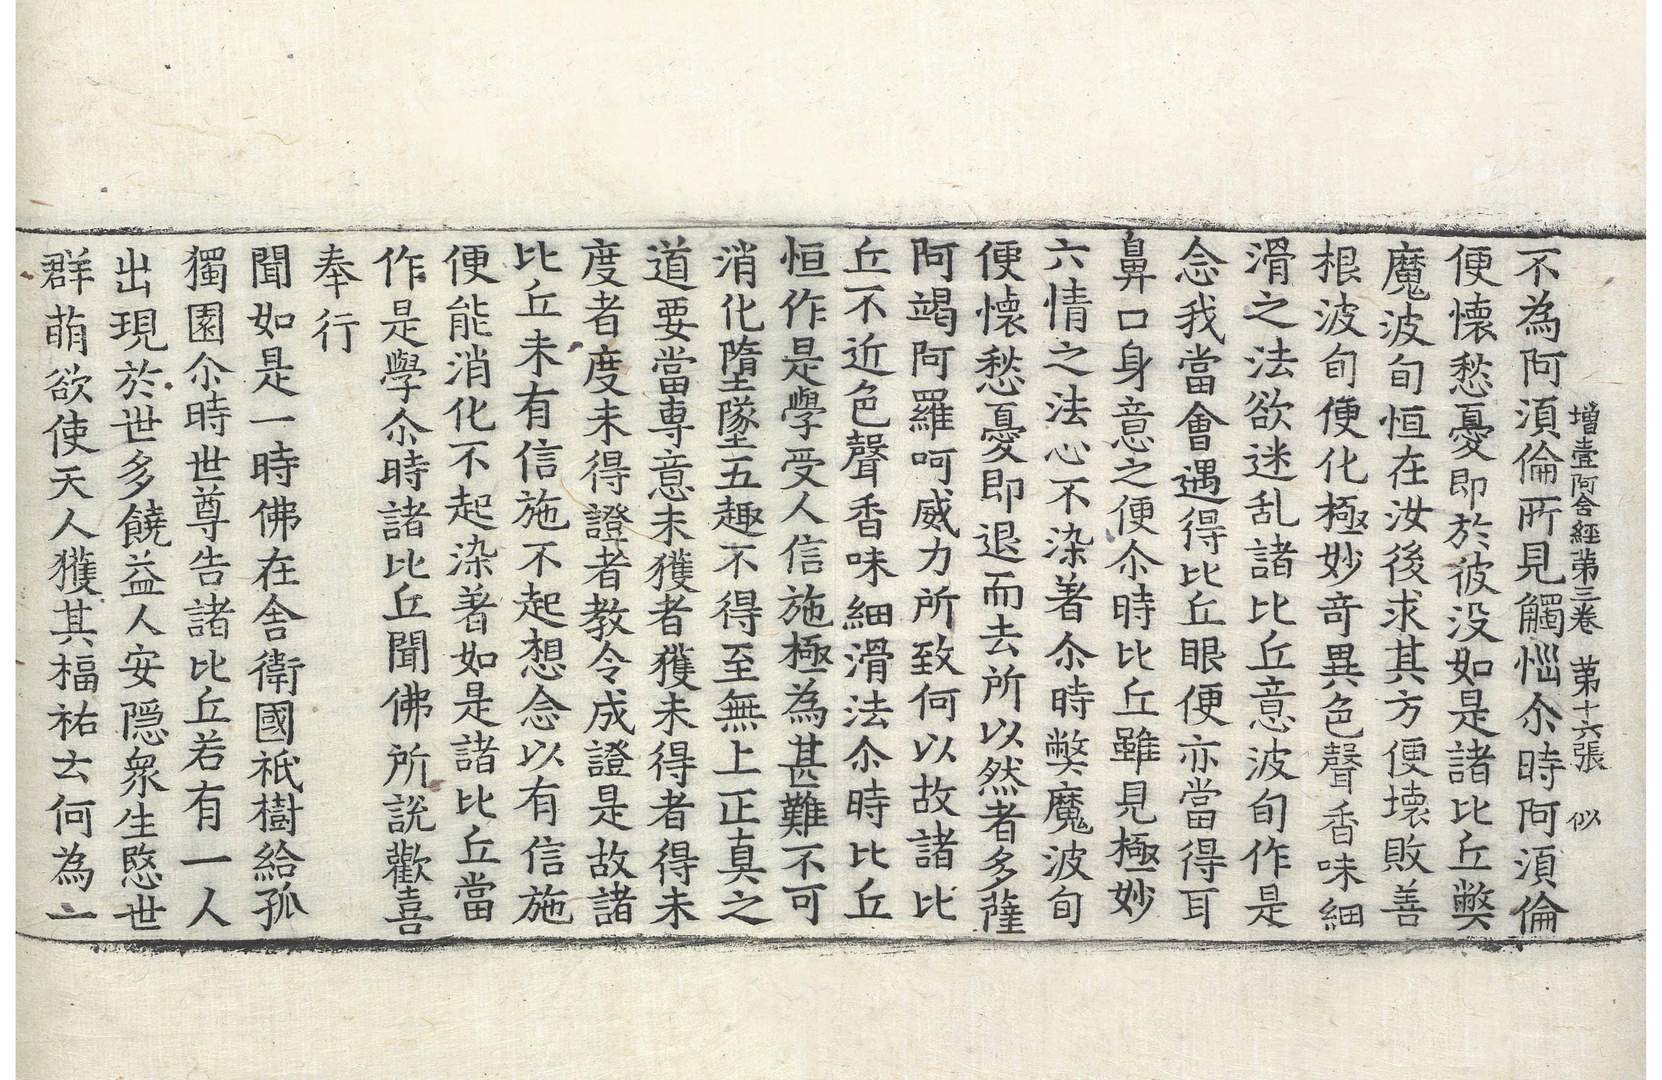 增壹阿含經第三卷 第十六張 似
不為阿湏倫所見觸惱尒時阿湏倫
便懷愁憂即於彼没如是諸比丘弊
魔波旬恒在汝後求其方便壊敗善
根波旬便化極妙竒異色聲香味細
滑之法欲迷乱諸比丘意波旬作是
念我當會遇得比丘眼便亦當得耳
鼻口身意之便尒時比丘雖見極妙
六情之法心不染著尒時弊魔波旬
便懷愁憂即退而去所以然者多薩
阿竭阿羅呵威力所致何以故諸比
丘不近色聲香味細滑法尒時比丘
恒作是學受人信施極為甚難不可
消化墮墜五趣不得至無上正真之
道要當専意未獲者獲未得者得未
度者度未得證者教令成證是故諸
比丘未有信施不起想念以有信施
便能消化不起染著如是諸比丘當
作是學尒時諸比丘聞佛所說歡喜
奉行
聞如是一時佛在舎衛國祇樹給孤
獨園尒時世尊告諸比丘若有一人
出現於世多饒益人安隠衆生愍世
群萌欲使天人獲其福祐云何為一